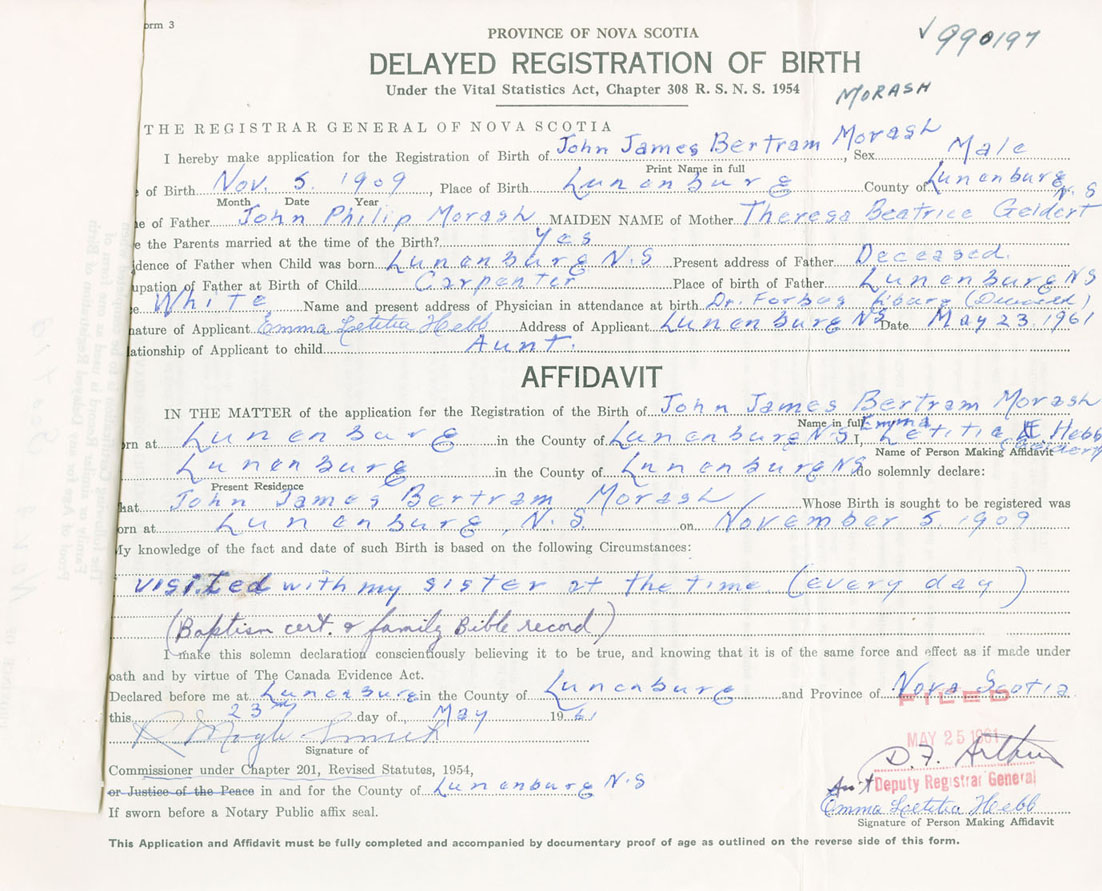 orm 3
PROVINCE OF NOVA SCOTIA
✓990197
DELAYED REGISTRATION OF BIRTH
Under the Vital Statistics Act, Chapter 308 R. S. N. S. 1954
MORASH
THE REGISTRAR GENERAL OF NOVA SCOTIA
I hereby make application for the Registration of Birth of John James Bertram Morash, Sex Male
Print Name in full
e of Birth Nov. 5. 1909, Place of Birth Lunenburg County of Lunenburg N.S
Month Date Year
e of Father John Philip Morash MAIDEN NAME of Mother Theresa Beatrice Geldert
e the Parents married at the time of the Birth? Yes
dence of Father when Child was born Lunenburg N.S Present address of Father Deceased.
upation of Father at Birth of Child Carpenter Place of birth of Father Lunenburg NS
e White Name and present address of Physician in attendance at birth Dr. Forbes (Deceased)
nature of Applicant Emma Letitia Hebb Address of Applicant Lunenburg NS Date May 23. 1961
lationship of Applicant to child Aunt.
AFFIDAVIT
IN THE MATTER of the application for the Registration of the Birth of John James Bertram Morash
Name in full
rn at Lunenburg in the County of Lunenburg N.S I, Emma Letitia Hebb
Name of Person Making Affidavit
Lunenburg in the County of Lunenburg NS do solemnly declare:
Present Residence
hat John James Bertram Morash Whose Birth is sought to be registered was
orn at Lunenburg, N.S on November 5. 1909
My knowledge of the fact and date of such Birth is based on the following Circumstances:
visited with my sister at the time (every day)
(Baptism cert. & family Bible record)
I make this solemn declaration conscientiously believing it to be true, and knowing that it is of the same force and effect as if made under
oath and by virtue of The Canada Evidence Act.
Declared before me at Lunenburg in the County of Lunenburg and Province of Nova Scotia
this 23rd day of May 1961
FILED
MAY 25 1961
Signature of
D. F. Arthur
Commissioner under Chapter 201, Revised Statutes, 1954,
Ass't Deputy Registrar General
or Justice of the Peace in and for the County of Lunenburg N.S
Emma Letitia Hebb
If sworn before a Notary Public affix seal.
Signature of Person Making Affidavit
This Application and Affidavit must be fully completed and accompanied by documentary proof of age as outlined on the reverse side of this form.